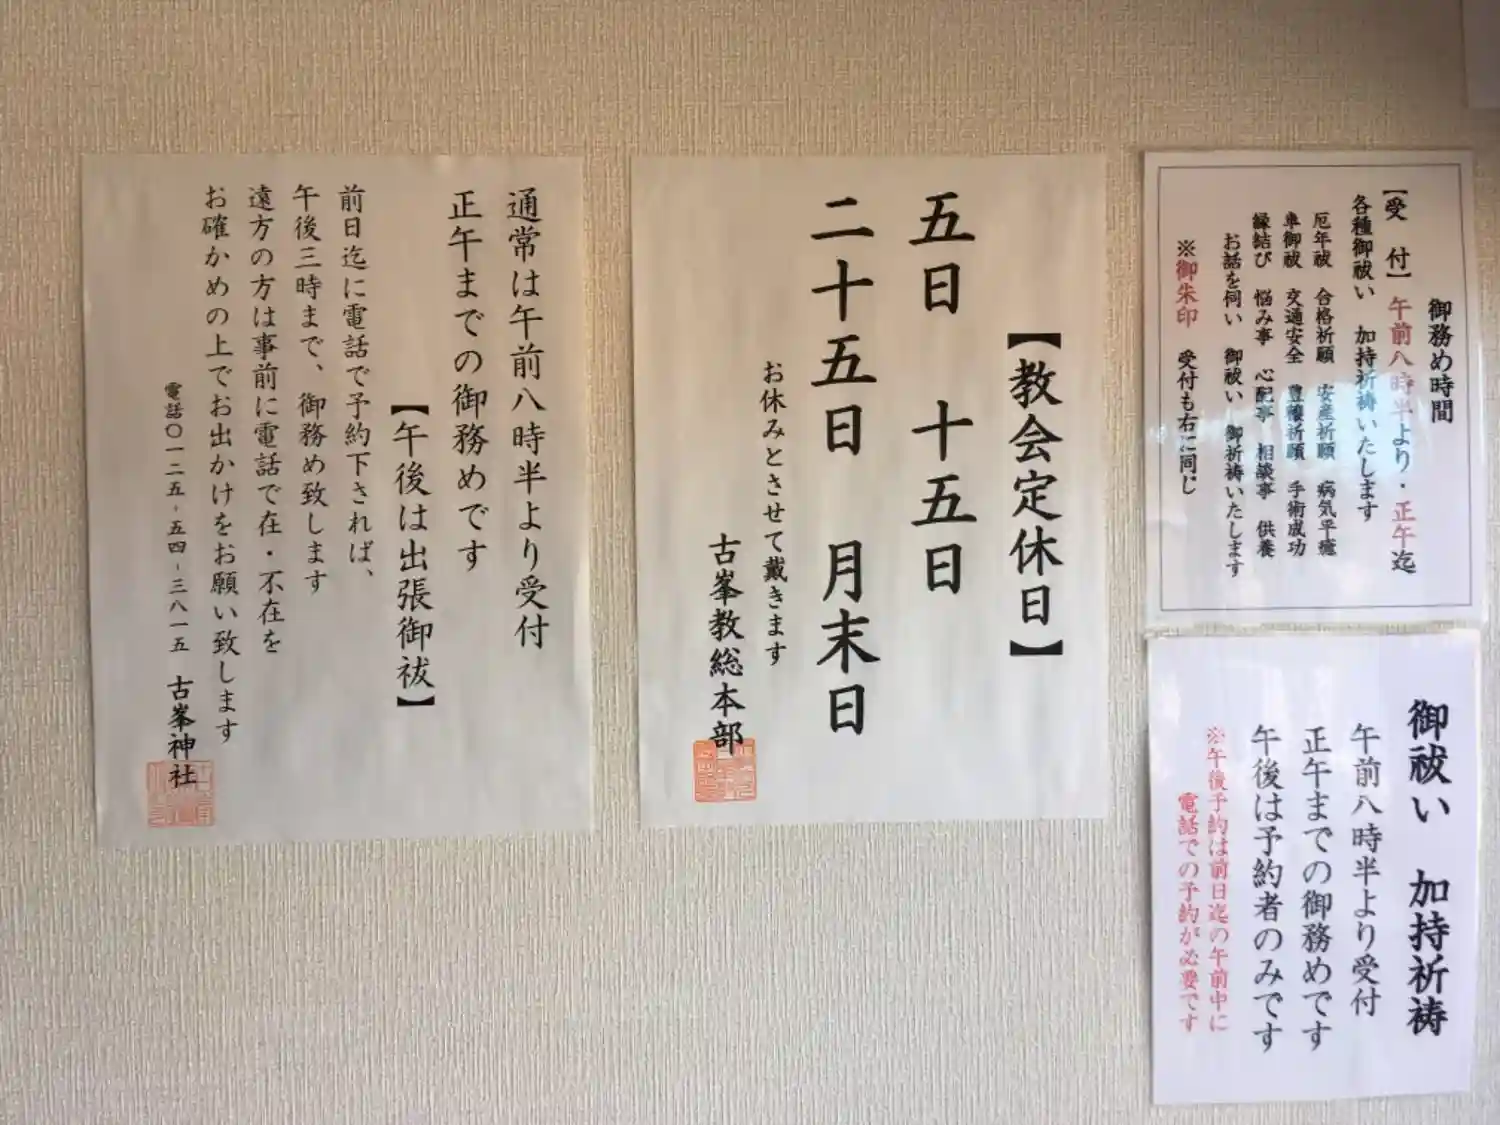 御務め時間
【受　付】午前八時半より・正午迄
各種御祓い　加持祈祷いたします
厄年祓　合格祈願　安産祈願　病気平癒
車御祓　交通安全　豊穣祈願　手術成功
縁結び　悩み事　心配事　相談事　供養
お話を伺い　御祓い　御祈祷いたします
※御朱印　受付も右に同じ
御祓い　加持祈祷
午前八時半より受付
正午までの御務めです
午後は予約者のみです
※午後予約は前日迄の午前中に
電話での予約が必要です
【教会定休日】
五日　十五日
二十五日　月末日
お休みとさせて戴きます
古峯教総本部
通常は午前八時半より受付
正午までの御務めです
【午後は出張御祓】
前日迄に電話で予約下されば、
午後三時まで、御務め致します
遠方の方は事前に電話で在・不在を
お確かめの上でお出かけをお願い致します
電話〇一二五-五四-三八一五　古峯神社